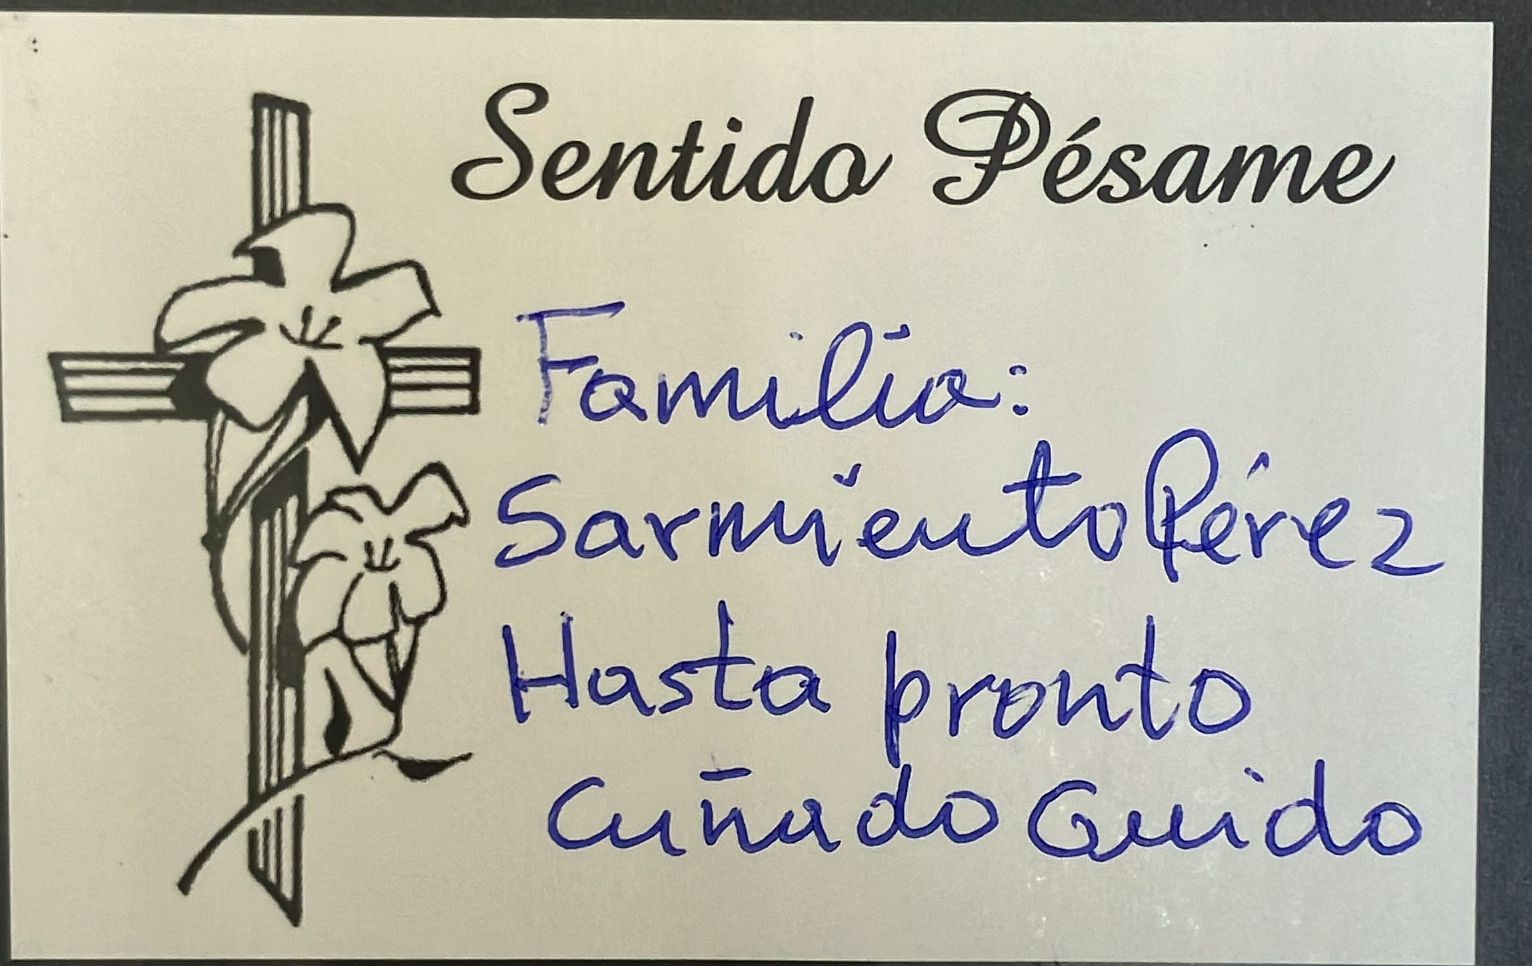 Sentido Pésame
Familia:
Sarmiento Pérez
Hasta pronto
Cuñado Guido